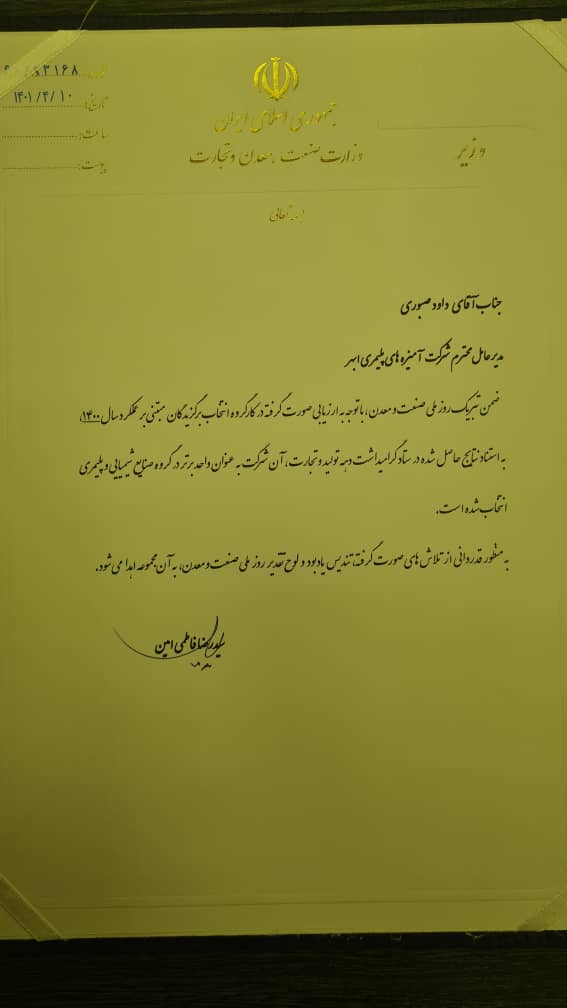 تاریخ: ۱۴۰۱/۴/۱۰
ساعت:
پیوست:
جمهوری اسلامی ایران
وزارت صنعت، معدن و تجارت
وزیر
بسمه تعالی
جناب آقای داود صبوری
مدیر عامل محترم شرکت آمیزه های پلیمری ابهر
ضمن تبریک روز ملی صنعت و معدن، با توجه به ارزیابی صورت گرفته در کارگروه انتخاب برگزیدگان مبتنی بر عملکرد سال ۱۴۰۰،
به استناد نتایج حاصل شده در ستاد گرامیداشت دهه تولید و تجارت، آن شرکت به عنوان واحد برتر در گروه صنایع شیمیایی و پلیمری
انتخاب شده است.
به منظور قدردانی از تلاش های صورت گرفته، تندیس یادبود و لوح تقدیر روز ملی صنعت و معدن، به آن مجموعه اهدا می شود.
سیدرضا فاطمی امین